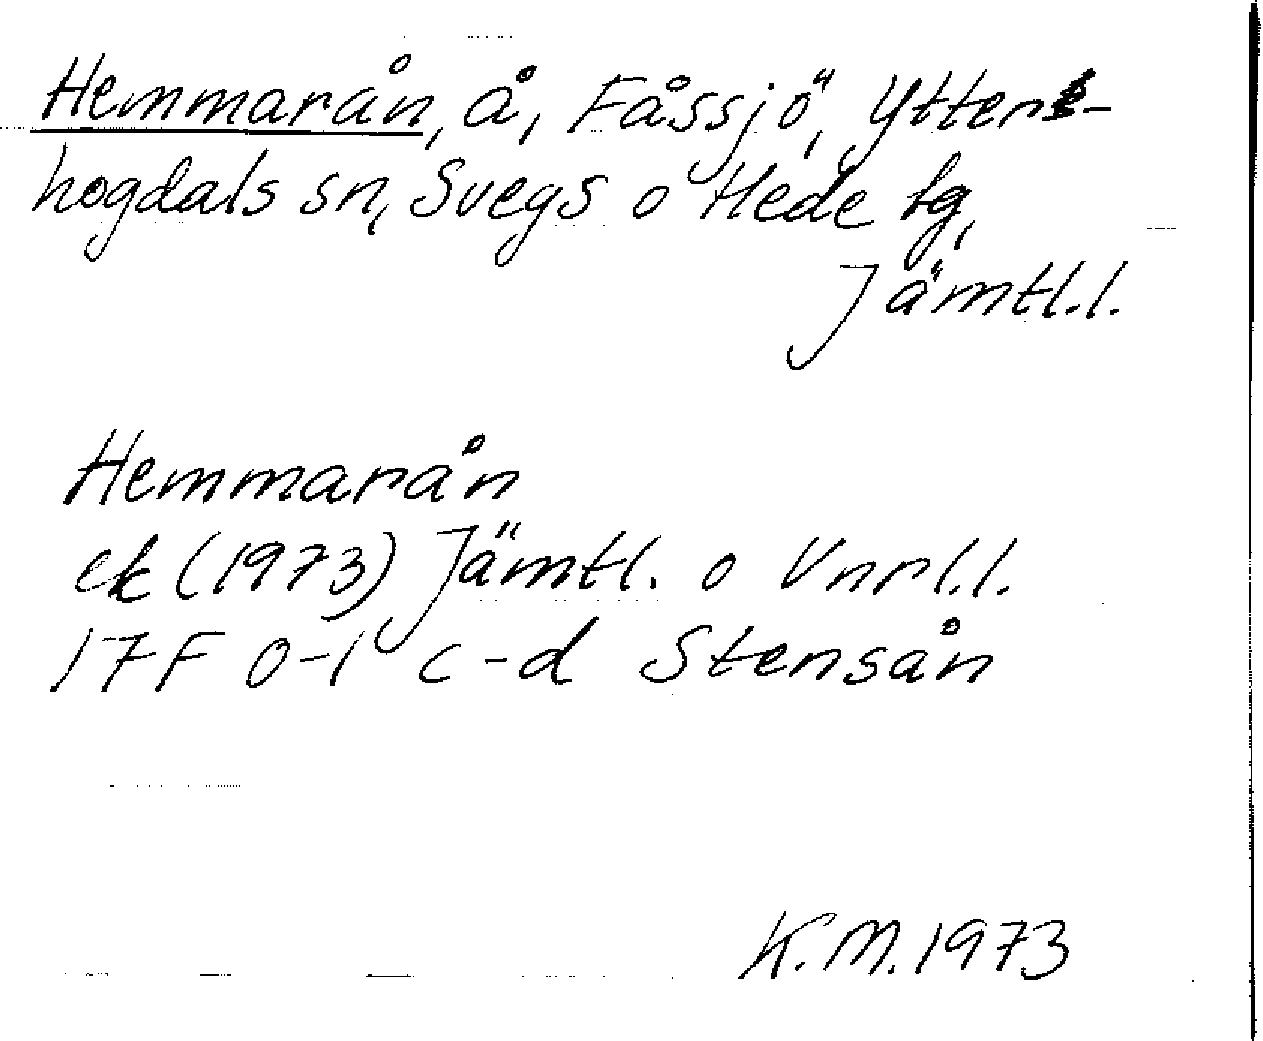 Hemmarån, å, Fåssjö, Ytter-
hogdals sn, Svegs o Hede tg,
Jämtl.l.
Hemmarån
ek (1973) Jämtl. o Vnrl.l.
17F 0-1 c-d Stensån
K.M. 1973